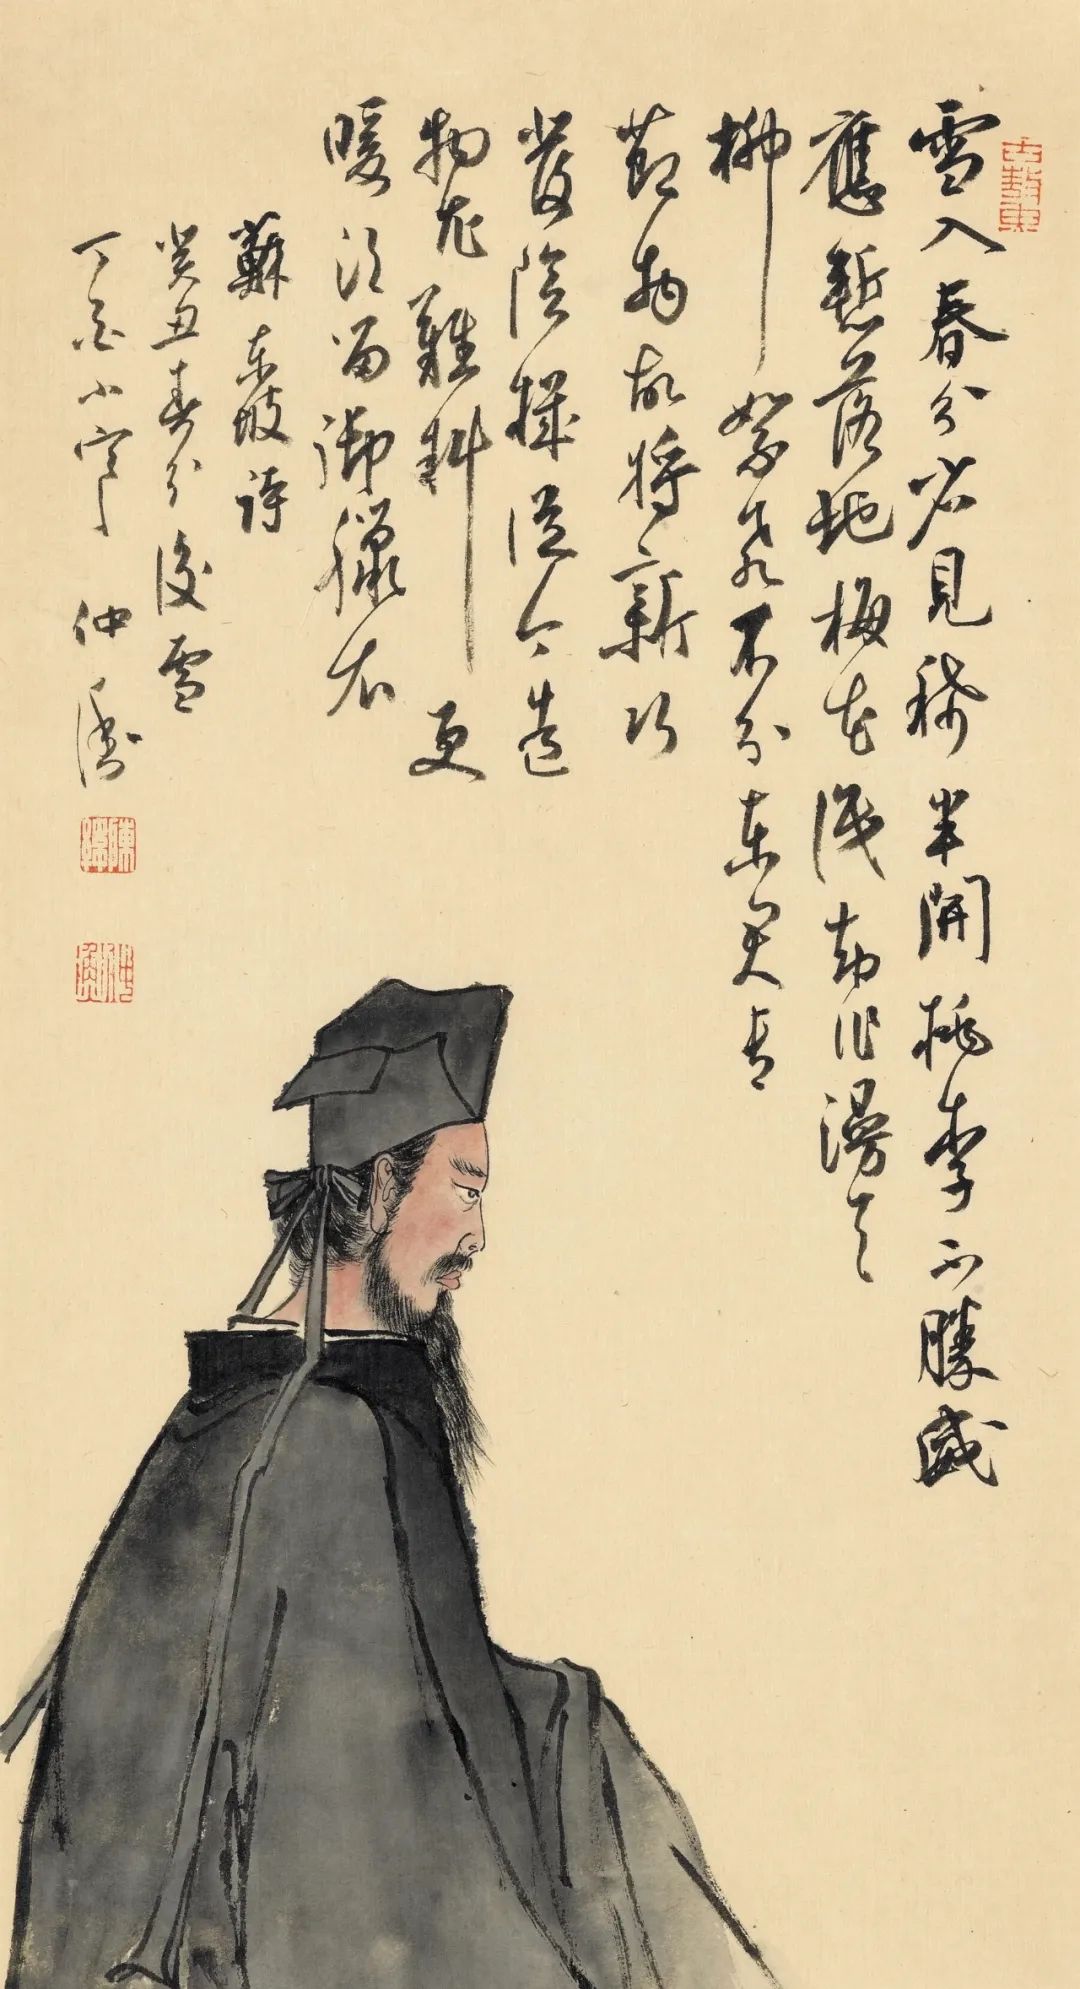 雪入春分省見稀半開桃李不勝威
應慙落地梅花識却作漫天
柳絮飛不分東君專
節物故將新巧
發陰機從今造
物尤難料更
暖須留御臘衣
蘇東坡詩
癸丑春分後雪
丁酉小寒 仲